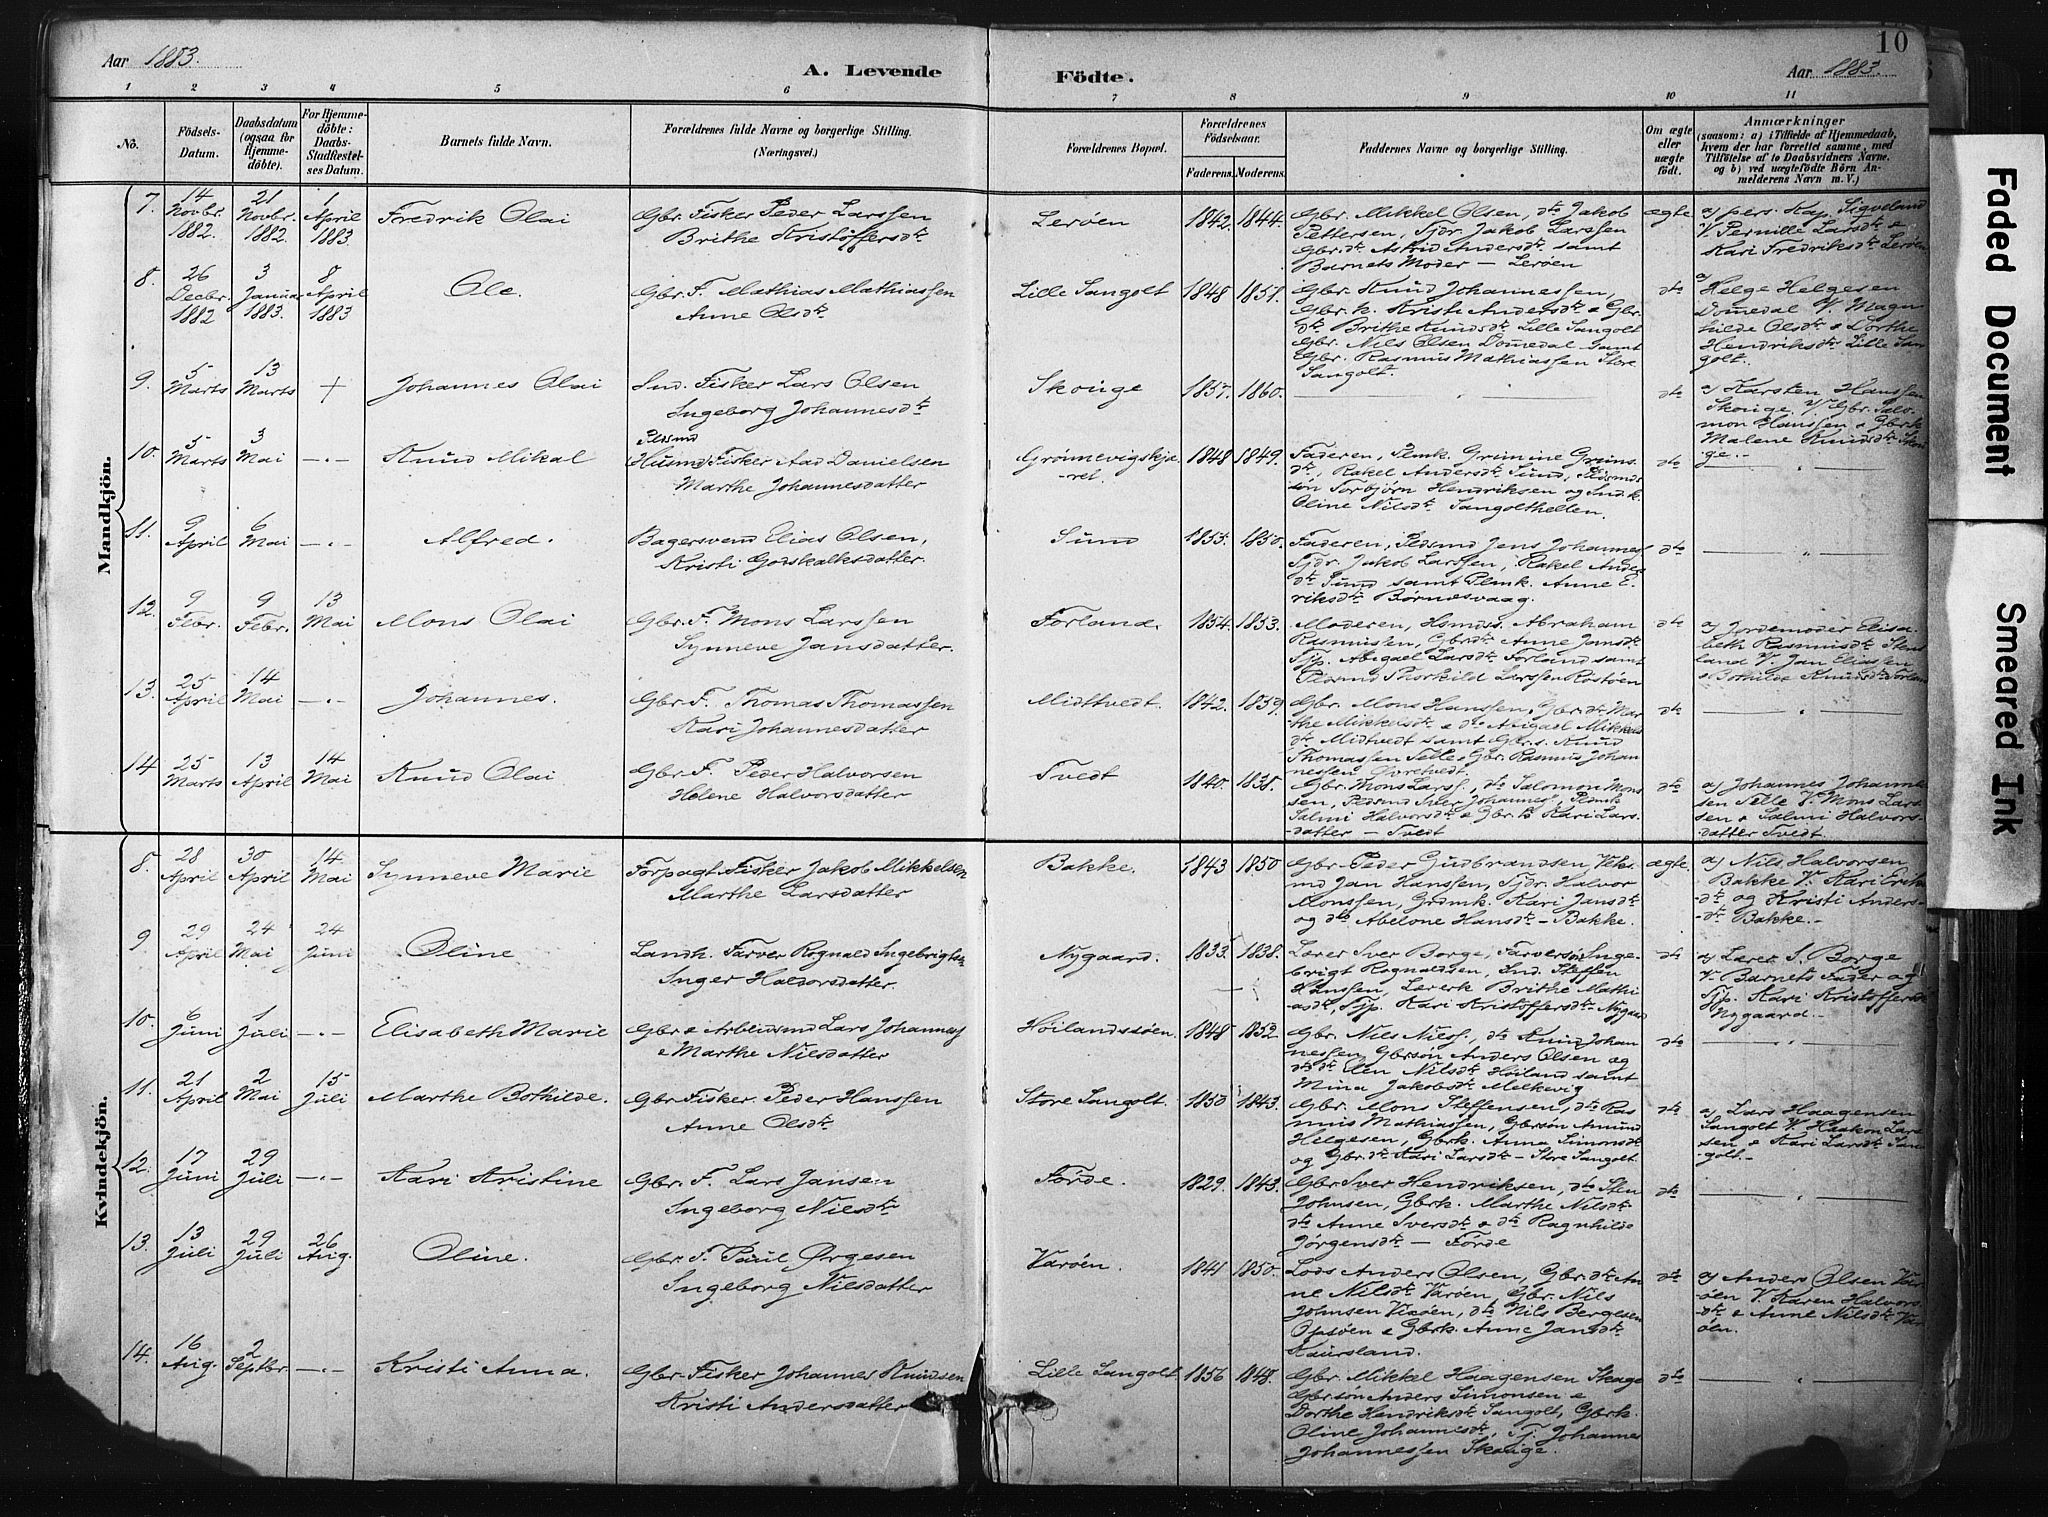 Aar 1883.
A. Levende
Födte.
Aar 1883.
10
1 2 3 4 5 6 7 8 9 10 11
No.
Födsels-
Datum.
Daabsdatum
(ogsaa for
Hjemme-
döbte).
For Hjemme-
döbte:
Daabs-
Stadfæstel-
ses Datum.
Barnets fulde Navn.
Forældrenes fulde Navne og borgerlige Stilling.
(Næringsvei.)
Forældrenes Bopæl.
Forældrenes
Födselsaar.
Faderens. Moderens.
Faddernes Navne og borgerlige Stilling.
Om ægte
eller
uægte
födt.
Anmærkninger
(saasom: a) i Tilfælde af Hjemmedaab,
hvem der har forrettet samme, med
Tilföielse af to Daabsvidners Navne.
og b) ved uægtefödte Börn An-
melderens Navn m. V.)
Mandkjön.
7. 14 Novbr. 1882. 21 Novbr. 1882. 1 April 1883. Fredrik Olai
Gbr. Fisker Peder Larssen
Brithe Kristoffersdtr
Lerøen 1842. 1844.
Gbr. Mikkel Olsen, dto Jakob
Pettersen, Tjdr. Jakob Larssen
Gbr.dtr Astrid Andersdtr samt
Barnets Moder — Lerøen
ægte
a) pers. Kap. Sigveland
V. Pernille Larsdtr &
Kari Fredriksdtr Lerøen
8. 26 Decbr. 1882 3 Januar 1883. 8 April 1883 Ole.
Gbr. F. Mathias Mathiassen
Anne Olsdtr
Lille Sangolt 1848 1851.
Gbr. Knud Johannessen,
Gbr.k. Kristi Andersdtr & Gbr.
dtr Brithe Knudsdtr Lille Sangolt
Gbr. Nils Olsen Domedal samt
Gbr. Rasmus Mathiassen Store
Sangolt.
dto
a) Helge Helgesen
Domedal V. Magn
hilde Olsdtr & Dorthe
Hendriksdtr Lille San
golt.
9. 5 Marts 13 Marts + Johannes Olai
Ind. Fisker Lars Olsen
Ingeborg Johannesdtr
Skouge 1857. 1860.
dto
a) Karsten Hanssen
Skouge. V. Gbr. Salo-
mon Hanssen & Gbrk
Malene Knudsdtr Skou
ge.
10. 5 Marts 3 Mai Knud Mikal
Husmd Fisker Aad Danielsen
Marthe Johannesdatter
Grønnevigskjæ-
ret. 1848 1849.
Faderen, Plmk. Grimine Grims-
dtr, Rakel Andersdtr Sund, Pldsmds
søn Torbjørn Hendriksen og Ind.k.
Oline Nilsdtr Sangolthellen.
dto
11. 9 April 6 Mai Alfred.
Bagersvend Elias Olsen,
Kristi Godskalksdatter.
Sund 1855. 1850.
Faderen, Pldsmd Jens Johannes
Tjdr. Jakob Larssen, Rakel Anders
dtr Sund samt Plmk. Anne E-
riksdtr Børnesvaag.
dto
12. 9 Febr. 9 Febr. 13 Mai Mons Olai
Gbr. F. Mons Larssen
Synneve Jansdatter.
Forland. 1854. 1853.
Moderen, Hsmds. Abraham
Rasmussen, Gbr.dtr Anne Jansdtr
Tjp. Abigael Larsdtr Forland samt
Pldsmd Thorkild Larssen Rostøen
dto
a) Jordemoder Elisa-
beth Rasmusdtr Stens
land V. Jan Eliassen
& Bothilde Knudsdtr Forland
13. 25 April 14 Mai Johannes.
Gbr. F. Thomas Thomassen
Kari Johannesdatter
Midtvedt. 1842. 1859.
Gbr. Mons Hanssen, Gbr.dtr Mar
the Mikkelsdtr & dto Abigael Mikkels
dtr Midtvedt samt Gbr.s. Knud
Thomassen Telle & Gbr. Rasmus Johan
nessen Øvretvedt.
dto
14. 25 Marts 13 April 14 Mai Knud Olai
Gbr. F. Peder Halvorsen
Helene Halvorsdatter
Tvedt 1840. 1838.
Gbr. Mons Larss., dto Salomon Mons
sen, Pldsmd Iver Johannes., Pldmk
Salmi Halvorsdtr & Gbr.k Kari Lars-
datter — Tvedt
dto
a) Johannes Johannes
sen Telle V. Mons Lars-
sen & Salmi Halvors-
datter Tvedt.
Kvindekjön.
8. 28 April 30 April 14 Mai Synneve Marie
Forpagt. Fisker Jakob Mikkelsen
Marthe Larsdatter
Bakke. 1843 1850
Gbr. Peder Gudbrandsen,
Jan Hanssen, Tjdr. Halvor
Monssen, Grdmk. Kari Jansdtr
og dto Abelone Hansdtr — Bakke.
ægte.
a) Nils Halvorsen
Bakke V. Kari Eriks-
dtr og Kristi Anders-
dtr Bakke.
9 29 April 24 Mai 24 Juni Oline
Landh. Farver Rognald Ingebrigtsen
Inger Haldorsdatter.
Nygaard. 1833. 1838.
Lærer Iver Borge, Farversøn Inge-
brigt Rognaldsen, Ind. Steffen
Hanssen, Lærerk Brithe Mathi
asdtr, Tjp. Kari Kristoffersdtr Nygaard
dto
a) Lærer I. Borge
V. Barnets Fader og
Tjp. Kari Kristoffersdtr
Nygaard.
10. 6 Juni 1 Juli Elisabeth Marie
Gbr & Arbeidsmd Lars Johanness
& Marthe Nilsdatter
Høilandssøen. 1848 1852
Gbr. Nils Nilss., dto Knud Johan
nessen, Gbrsøn Anders Olsen og
dtr Elen Nilsdtr Høiland samt
Mina Jakobsdtr Melkevig
dto
11. 21 April 2 Mai 15 Juli Marthe Bothilde.
Gbr Fisker. Peder Hanssen
Anne Olsdtr
Store Sangolt. 1850. 1843.
Gbr. Mons Steffensen, dto Ras
mus Mathiassen, Gbrsøn Amund
Helgesen, Gbrk. Anna Simonsdtr
og Gbr.dtr Kari Larsdtr — Store Sangolt.
dto
a) Lars Haagensen
Sangolt V. Haakon Lars
sen & Kari Larsdtr San
golt.
12. 17 Juni 29 Juli Kari Kristine
Gbr. F. Lars Jansen
Ingeborg Nilsdtr
Førde. 1829. 1843.
Gbr Iver Hendriksen, dto Sten
Johnsen, Gbrk. Marthe Nilsdtr
dto Anne Iversdtr & dto Ragnhilde
Jørgensdtr — Førde
dto
13. 13 Juli 29 Juli 26 Aug. Oline.
Gbr. F. Paul Ørgesen
Ingeborg Nilsdatter
Varøen. 1841 1850.
Lods Anders Olsen, Gbr.dtr An
ne Nilsdtr Varøen, Gbr. Nils
Johnsen Vixøen, dto Nils Bergesen
Opsøen & Gbrk. Anne Jansdtr
Kaursland.
dto
a) Anders Olsen Var
øen V. Karen Halvors-
dtr & Anne Nilsdtr Var
øen.
14. 16 Aug. 2 Septbr. Kristi Anna.
Gbr. Fisker Johannes Knudsen
Kristi Andersdatter
Lille Sangolt 1856 1848.
Gbr. Mikkel Haagensen Skage
Gbrsøn Anders Simonsen &
Dorthe Hendriksdtr Sangolt, Gbrk.
Oline Johannesdtr, Tj. Johannes
Johannessen Skouge.
dto
Faded Document
Smeared Ink